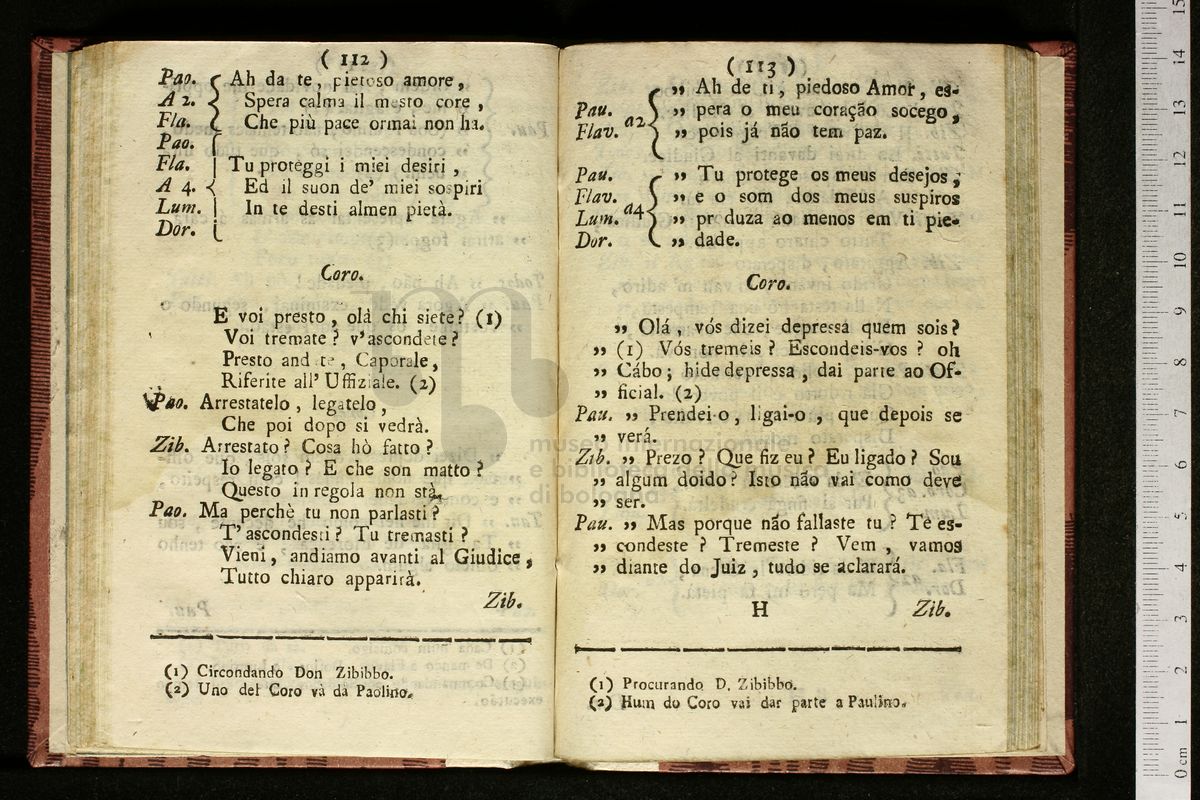 ( 112 )
Pao. Ah da te, pietoso amore,
A 2. Spera calma il mesto core,
Fla. Che più pace ormai non ha.
Pao.
Fla. Tu proteggi i miei desiri,
A 4. Ed il suon de' miei sospiri
Lum. In te desti almen pietà.
Dor.
Coro.
E voi presto, olà chi siete? (1)
Voi tremate? v'ascondete?
Presto andate, Caporale,
Riferite all' Uffiziale. (2)
Pao. Arrestatelo, legatelo,
Che poi dopo si vedrà.
Zib. Arrestato? Cosa hò fatto?
Io legato? E che son matto?
Questo in regola non stà.
Pao. Ma perchè tu non parlasti?
T' ascondesti? Tu tremasti?
Vieni, andiamo avanti al Giudice,
Tutto chiaro apparirà.
Zib.
(1) Circondando Don Zibibbo.
(2) Uno del Coro và dà Paolino.
( 113 )
„ Ah de ti, piedoso Amor, es-
Pau. a2 „ pera o meu coração socego,
Flav. „ pois já não tem paz.
Pau. „ Tu protege os meus desejos,
Flav. „ e o som dos meus suspiros
Lum. a4 „ produza ao menos em ti pie-
Dor. „ dade.
Coro.
„ Olá, vós dizei depressa quem sois?
„ (1) Vós tremeis? Escondeis-vos? oh
„ Cábo; hide depressa, dai parte ao Of-
„ ficial. (2)
Pau. „ Prendei-o, ligai-o, que depois se
„ verá.
Zib. „ Prezo? Que fiz eu? Eu ligado? Sou
„ algum doido? Isto não vai como deve
„ ser.
Pau. „ Mas porque não fallaste tu? Te es-
„ condeste? Tremeste? Vem, vamos
„ diante do Juiz, tudo se aclarará.
H Zib.
(1) Procurando D. Zibibbo.
(2) Hum do Coro vai dar parte a Paulino.
museo internazionale
e biblioteca della musica
di bologna
0 cm 1 2 3 4 5 6 7 8 9 10 11 12 13 14 15